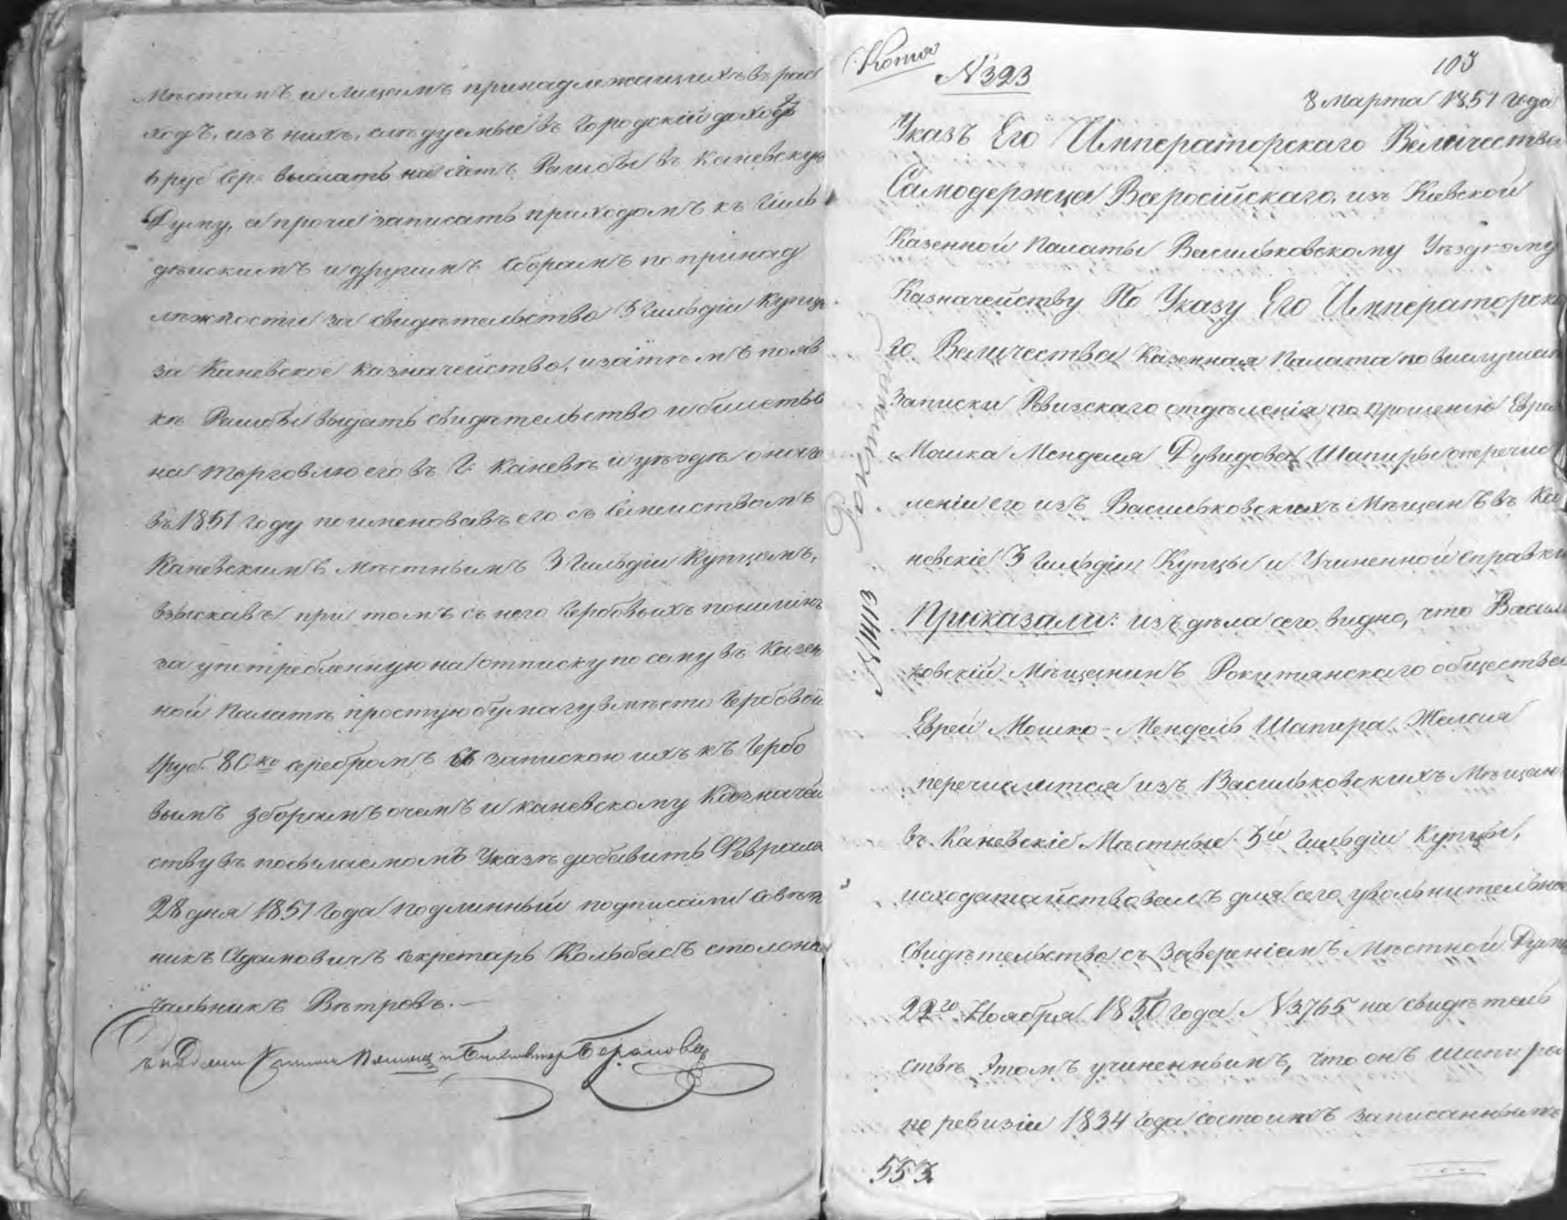 Мѣстамъ и лицамъ принадлежащихъ въ рас
ходъ, изъ нихъ, слѣдуемые въ Городской доходъ
руб сер. выслать на счетъ въ Каневскую
Думу, а прочіе записать приходомъ къ Гиль
дѣйскимъ и другимъ сборамъ по принад
лежности за свидѣтельство 3 Гильдіи Купца
за Каневское Казначейство, и затѣмъ
къ выдать свидѣтельство и билеты
на торговлю его въ Г. Каневѣ и уѣздѣ онаго
въ 1851 году поименовавъ его съ Семействомъ
Каневскимъ Мѣстнымъ 3 Гильдіи Купцомъ,
взыскавъ при томъ съ него Гербовыхъ пошлинъ
за употребленную на отписку по сему въ Казен
ной Палатѣ простую бумагу вмѣсто Гербовой
1 руб. 80 ко серебромъ съ запискою ихъ къ Гербо
вымъ зборамъ о чемъ и Каневскому Казначей
ству въ посылаемомъ Указѣ добавить Февраля
28 дня 1851 года подлинный подписали Совѣт
никъ Адамовичъ Секретарь Кольбасъ столона
чальникъ Вѣтровъ.
Копія
№ 323
103
8 Марта 1851 года
Указъ Его Императорскаго Величества
Самодержца Всеросійскаго, изъ Кіевской
Казенной Палаты Васильковскому Уѣздному
Казначейству По Указу Его Императорска
го Величества Казенная Палата по выслушан
Записки Ревизскаго отдѣленія по прошенію Еврея
Мошка Менделя Дувидова Шапиры о перечис
леніи его изъ Васильковскихъ Мѣщанъ въ Ка
невскіе 3 Гильдіи Купцы и Учиненной справки
Приказали: изъ дѣла сего видно, что Василь
ковскій Мѣщанинъ Рокитянскаго общества
Еврей Мошко-Мендель Шапира Желая
перечислится изъ Васильковскихъ Мѣщанъ
въ Каневскіе Мѣстные 3й Гильдіи Купцы,
исходатайствовалъ для сего увольнительное
свидѣтельство съ Завереніемъ Мѣстной Думы
22го Ноября 1850 года № 3765 на свидѣтель
ствѣ Этомъ учиненнымъ, что онъ Шапира
по ревизіи 1834 года состоитъ записаннымъ
553.
№ 1413